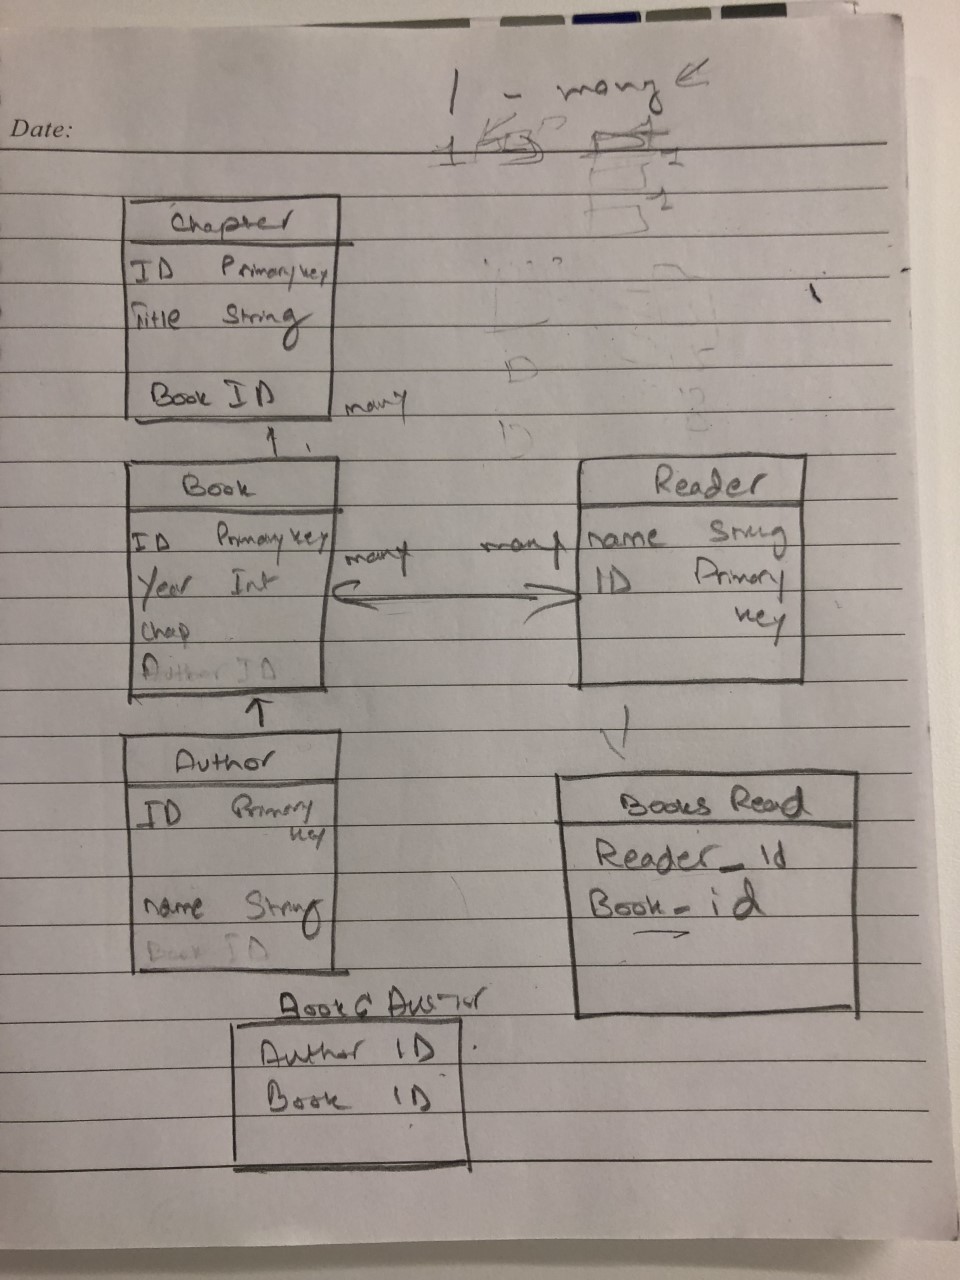 1 - many
Date:
1
Chapter
ID Primary key
Title String
Book ID
many
Book
ID Primary key
Year Int
Chap
Author ID
many many
Reader
name String
ID Primary
key
Author
ID Primary
key
name String
Book ID
Books Read
Reader_id
Book-id
Author ID
Book ID